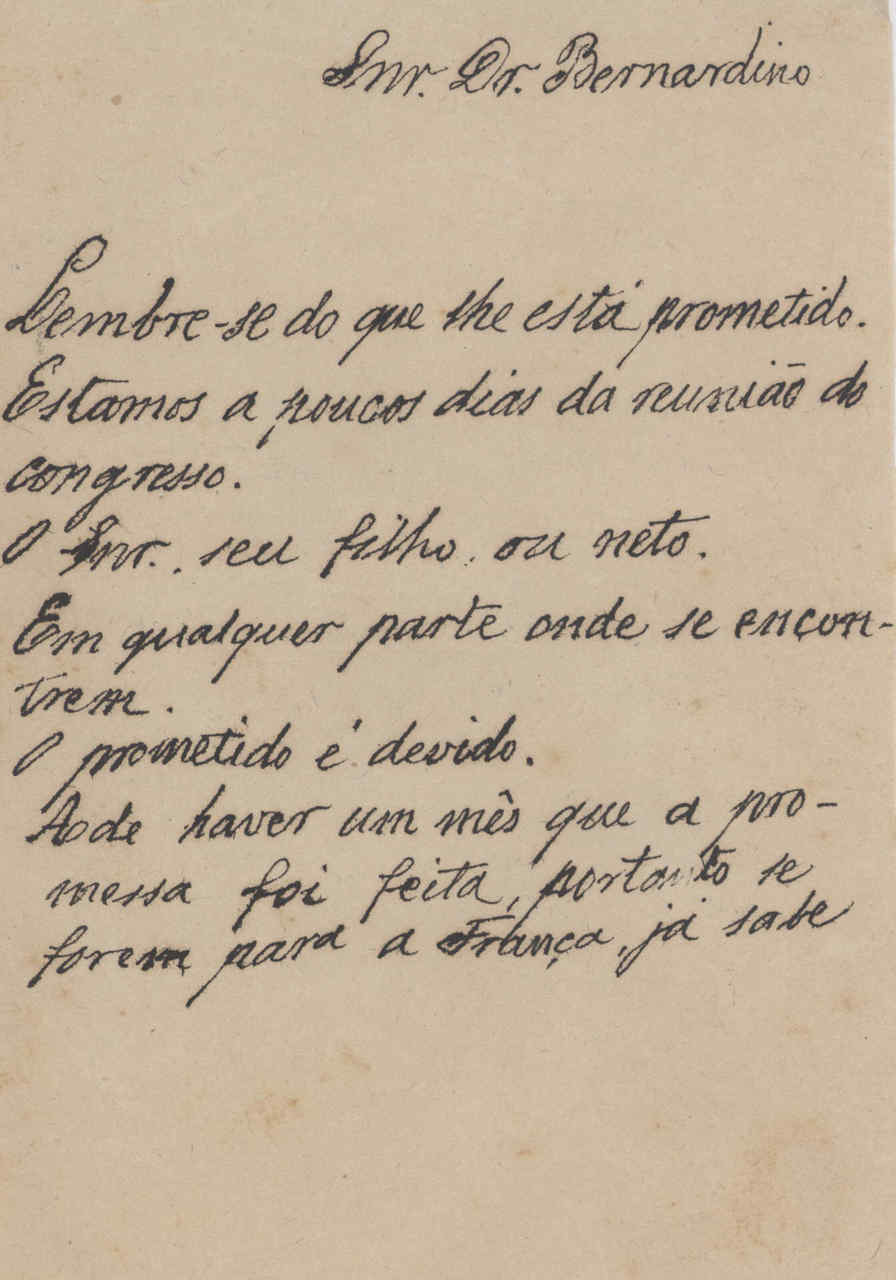 Snr. Dr. Bernardino
Lembre-se do que lhe está prometido.
Estamos a poucos dias da reunião do
congresso.
O Snr. seu filho ou neto.
Em qualquer parte onde se encon-
trem.
O prometido é devido.
Ade haver um mês que a pro-
messa foi feita, portanto se
forem para a França, já sabe